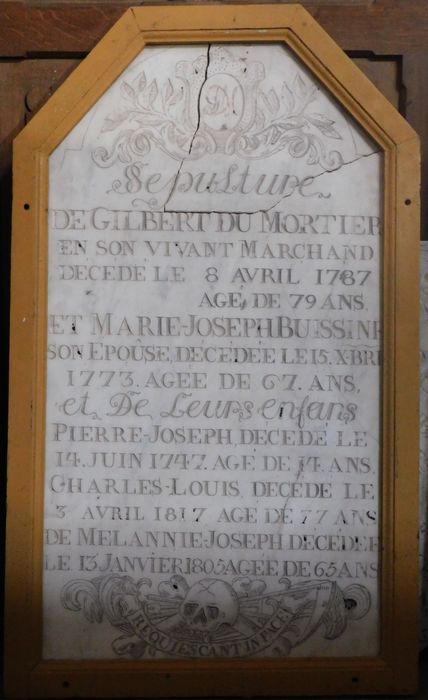 DM
Sepulture
DE GILBERT DU MORTIER
EN SON VIVANT MARCHAND
DÉCÉDÉ LE 8 AVRIL 1787
AGÉ, DE 79 ANS.
ET MARIE-JOSEPH BUISSINE
SON EPOUSE, DÉCÉDÉE LE 15. X.BRE
1773. AGÉE DE 67. ANS,
et De Leurs enfans
PIERRE-JOSEPH, DÉCÉDÉ LE
14. JUIN 1747. AGÉ DE 14 ANS.
CHARLES-LOUIS, DÉCÉDÉ LE
3 AVRIL 1817 AGÉ DE 77 ANS
DE MELANNIE-JOSEPH DECÉDÉE
LE 13 JANVIER 1805 AGÉE DE 65 ANS
REQUIESCANT IN PACE